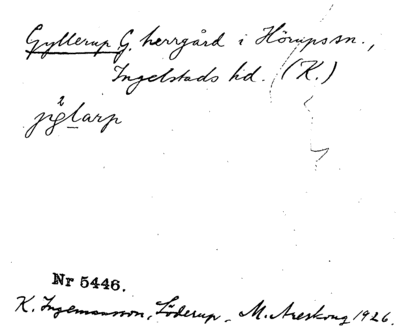 Gyllerup G. herrgård i Hörups sn.,
Ingelstads hd. (K.)
Nr 5446.
K. Ingemansson, Löderup. M. Areskoug 1926.